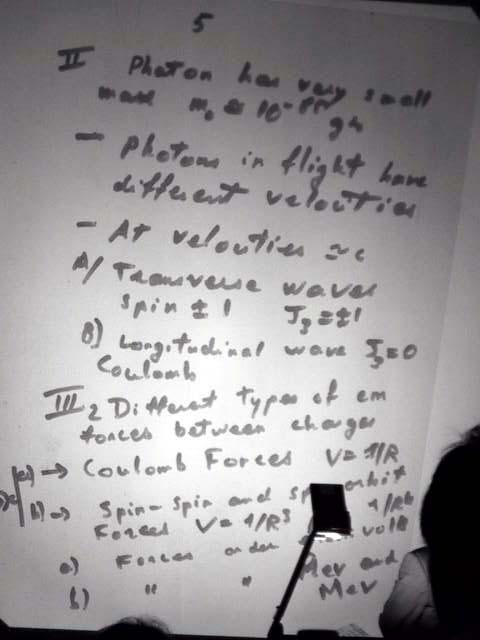 5
II Photon has very small
mass m₀ ≈ 10
- Photons in flight have
different velocities
- At velocities ≈ c
A/ Transverse waves
spin ± 1 J₃ = ±1
B) Longitudinal wave J₃ = 0
Coulomb
III 2 Different types of em
forces between charges
a) → Coulomb Forces V = 1/R
b) → Spin-spin and orbit
Forces V = 1/R³
a) Forces order volt
" " Mev and
b) Mev